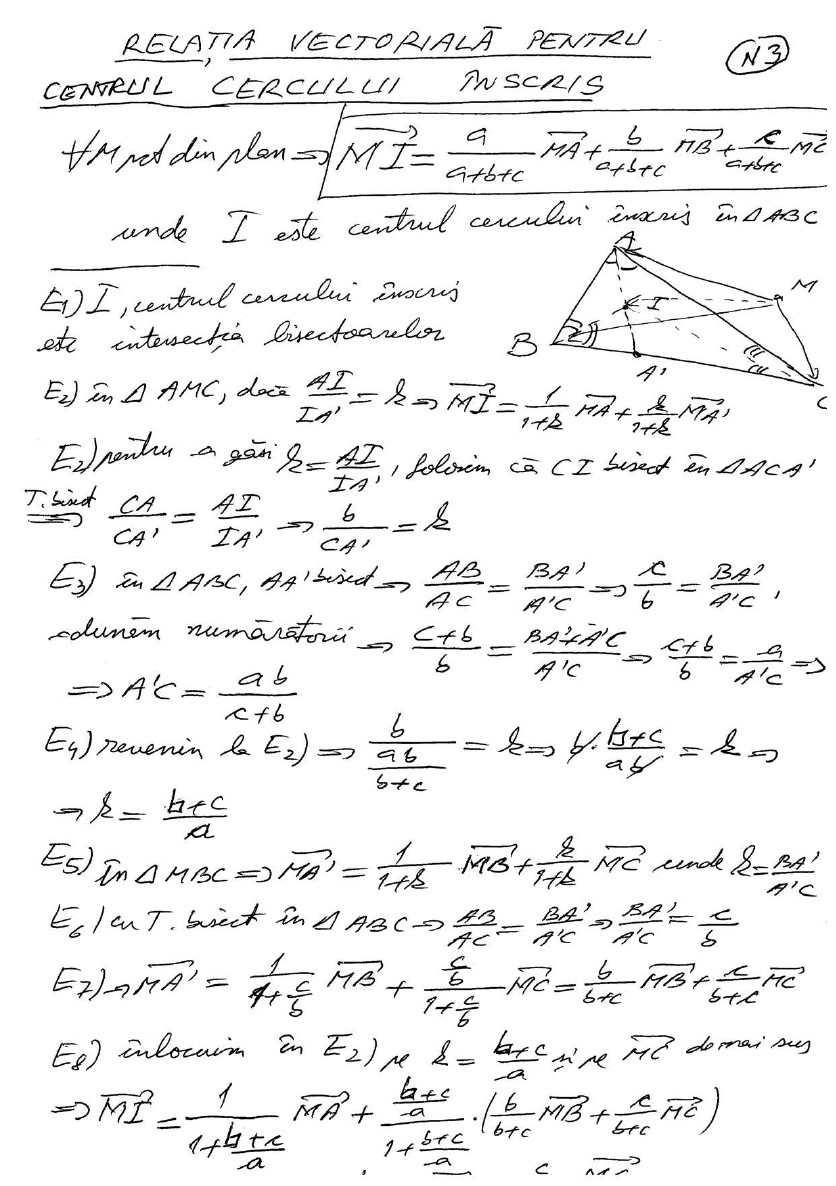 RELAȚIA VECTORIALĂ PENTRU
N3
CENTRUL CERCULUI ÎNSCRIS
∀ M pct din plan ⇒ MI⃗ = a/(a+b+c) MA⃗ + b/(a+b+c) MB⃗ + c/(a+b+c) MC⃗
unde I este centrul cercului înscris în ΔABC
E1) I, centrul cercului înscris
este intersecția bisectoarelor
A
I
M
B
A'
C
E2) în Δ AMC, dacă AI/IA' = k ⇒ MI⃗ = 1/(1+k) MA⃗ + k/(1+k) MA'⃗
E2) pentru a găsi k = AI/IA', folosim că CI bisect în ΔACA'
T. bisect ⇒ CA/CA' = AI/IA' ⇒ b/CA' = k
E3) în ΔABC, AA' bisect ⇒ AB/AC = BA'/A'C ⇒ c/b = BA'/A'C,
adunăm numărătorii ⇒ (c+b)/b = (BA'+A'C)/A'C ⇒ (c+b)/b = a/A'C ⇒
⇒ A'C = ab/(c+b)
E4) revenin la E2) ⇒ b/(ab/(b+c)) = k ⇒ b·(b+c)/(ab) = k ⇒
⇒ k = (b+c)/a
E5) în Δ MBC ⇒ MA'⃗ = 1/(1+k) MB⃗ + k/(1+k) MC⃗ unde k = BA'/A'C
E6) cu T. bisect în ΔABC ⇒ AB/AC = BA'/A'C ⇒ BA'/A'C = c/b
E7) ⇒ MA'⃗ = 1/(1+c/b) MB⃗ + (c/b)/(1+c/b) MC⃗ = b/(b+c) MB⃗ + c/(b+c) MC⃗
E8) înlocuim în E2) pe k = (b+c)/a și pe MC⃗ de mai sus
⇒ MI⃗ = 1/(1+(b+c)/a) MA⃗ + ((b+c)/a)/(1+(b+c)/a) · (b/(b+c) MB⃗ + c/(b+c) MC⃗)